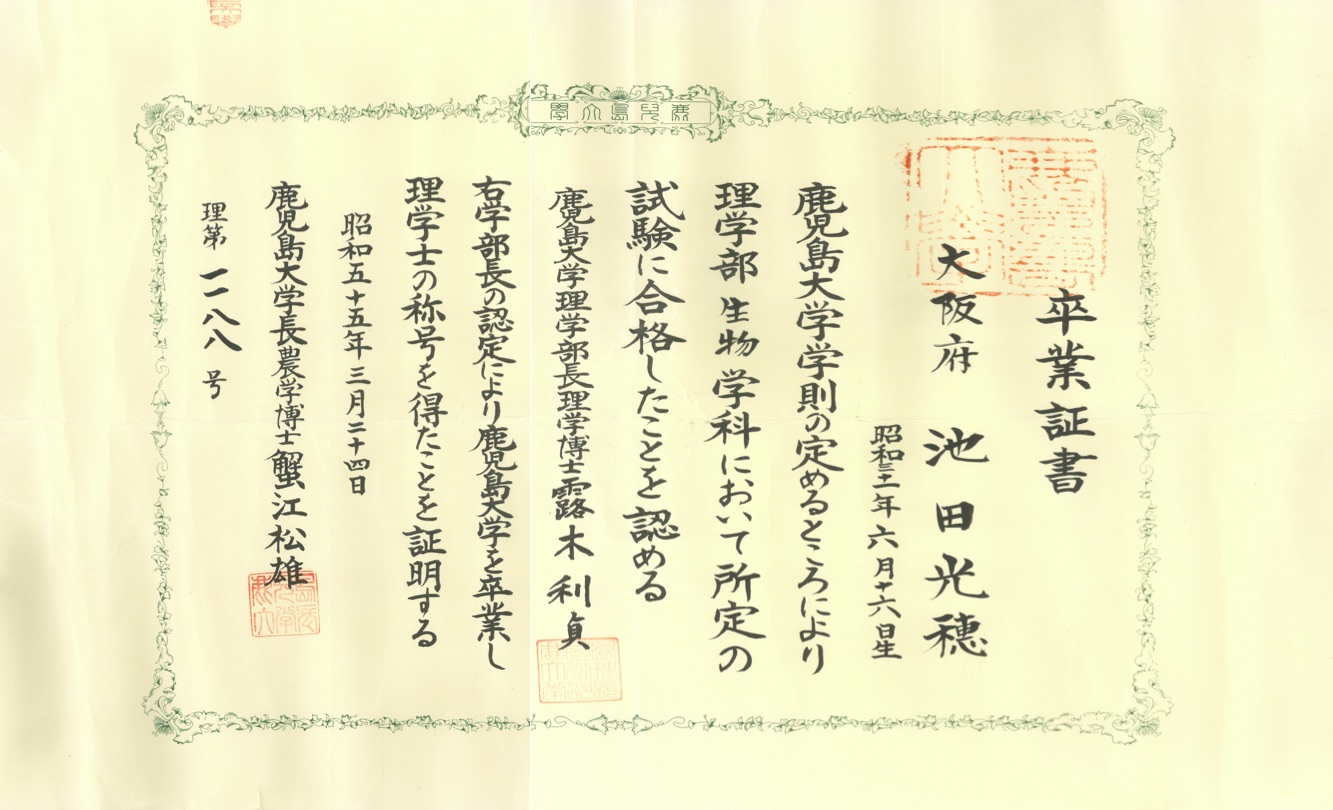 鹿児島大学
卒業証書
大阪府 池田光穂
昭和三十一年六月十六日生
鹿児島大学学則の定めるところにより
理学部生物学科において所定の
試験に合格したことを認める
鹿児島大学理学部長理学博士露木利貞
右学部長の認定により鹿児島大学を卒業し
理学士の称号を得たことを証明する
昭和五十五年三月二十四日
鹿児島大学長農学博士蟹江松雄
理第一一八八号